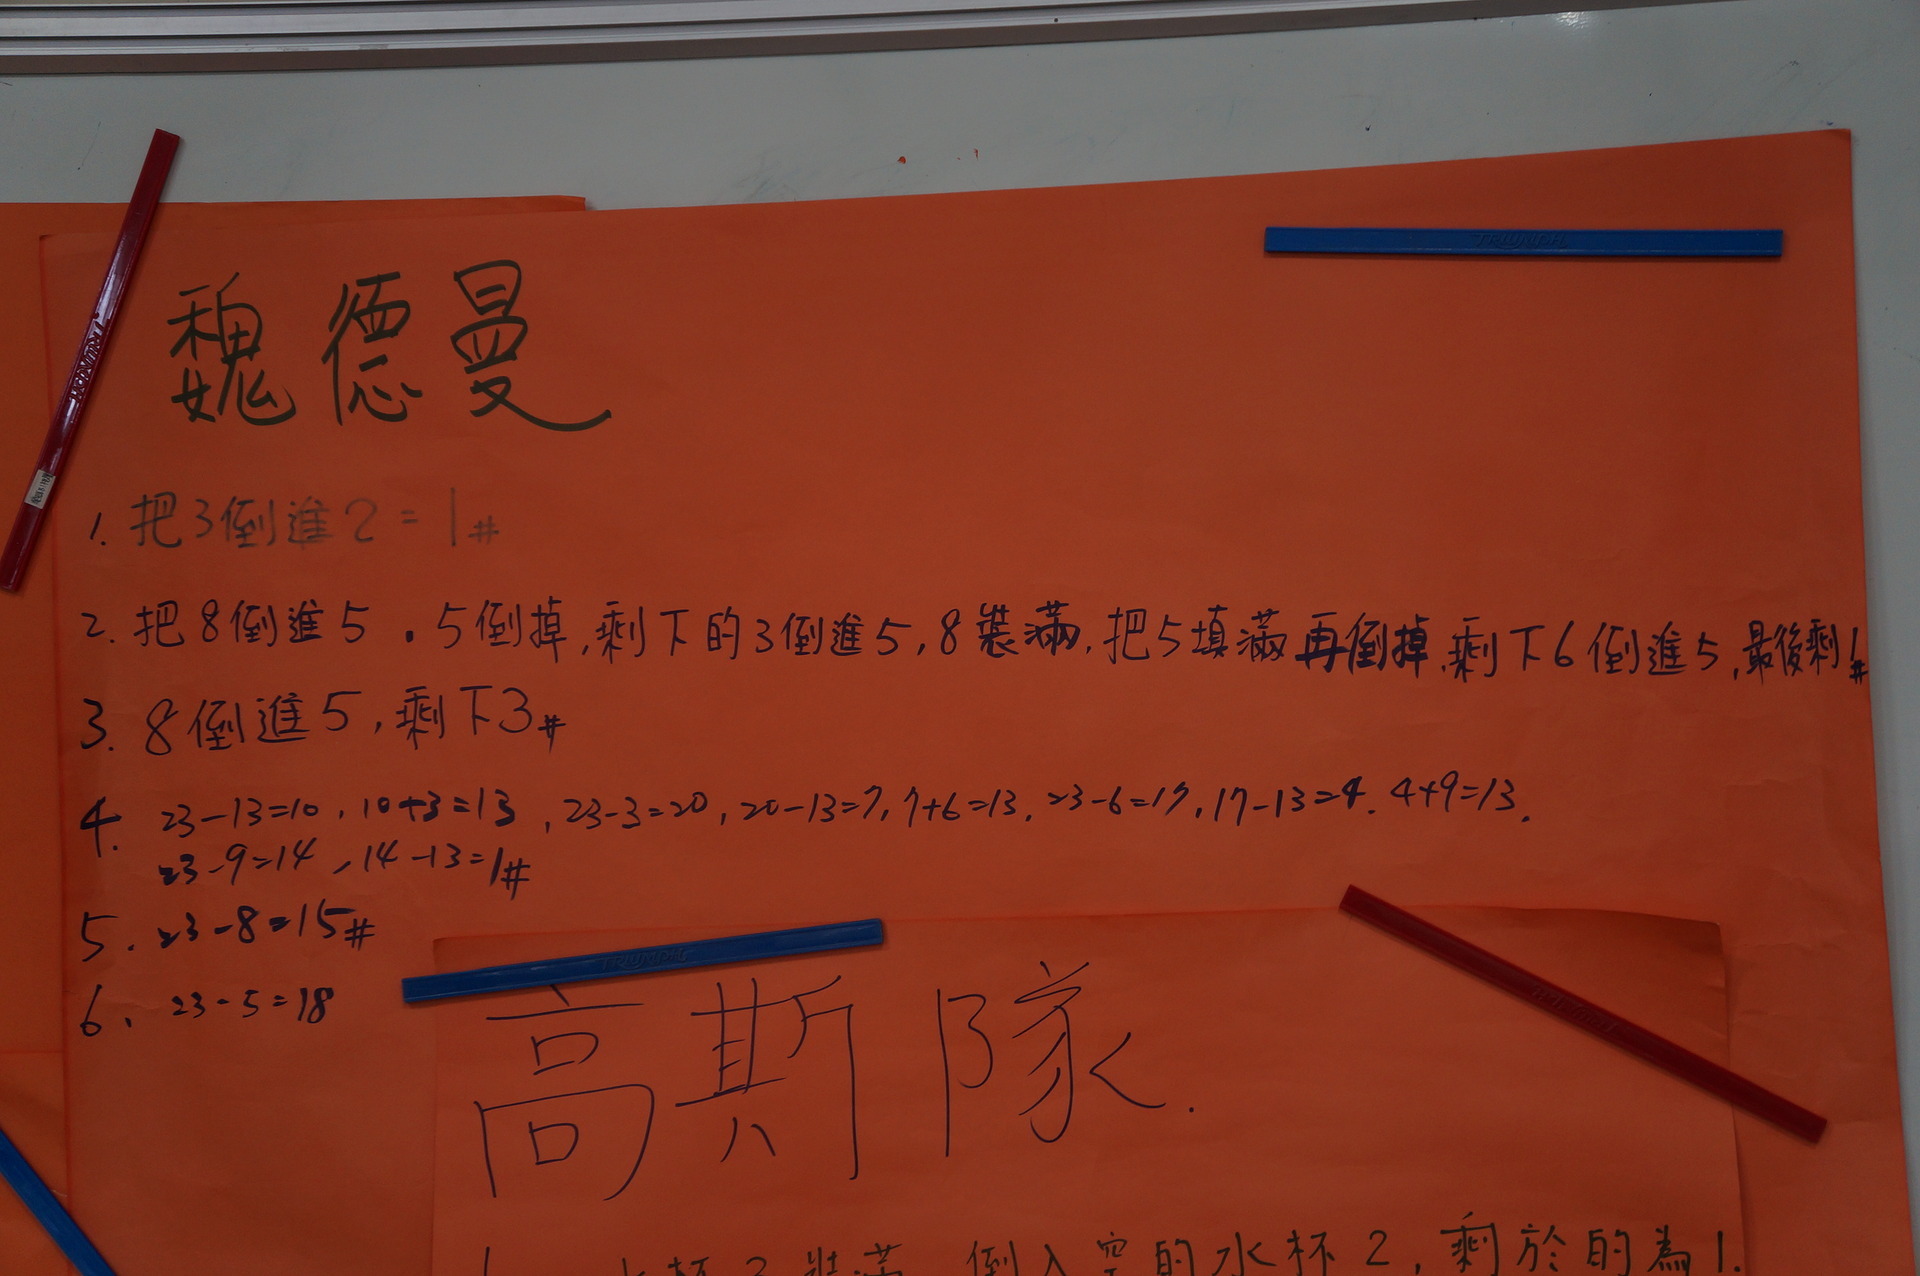 魏德曼
1. 把3倒進2=1#
2. 把8倒進5.5倒掉,剩下的3倒進5,8裝滿,把5填滿再倒掉,剩下6倒進5,最後剩1#
3. 8倒進5,剩下3#
4. 23-13=10,10+3=13,23-3=20,20-13=7,7+6=13.23-6=17,17-13=4.4+9=13.
23-9=14,14-13=1#
5. 23-8=15#
6. 23-5=18
高斯隊.
水杯3裝滿 倒入空的水杯2,剩於的為1.
TRIUMPH
TRIUMPH
TRIUMPH